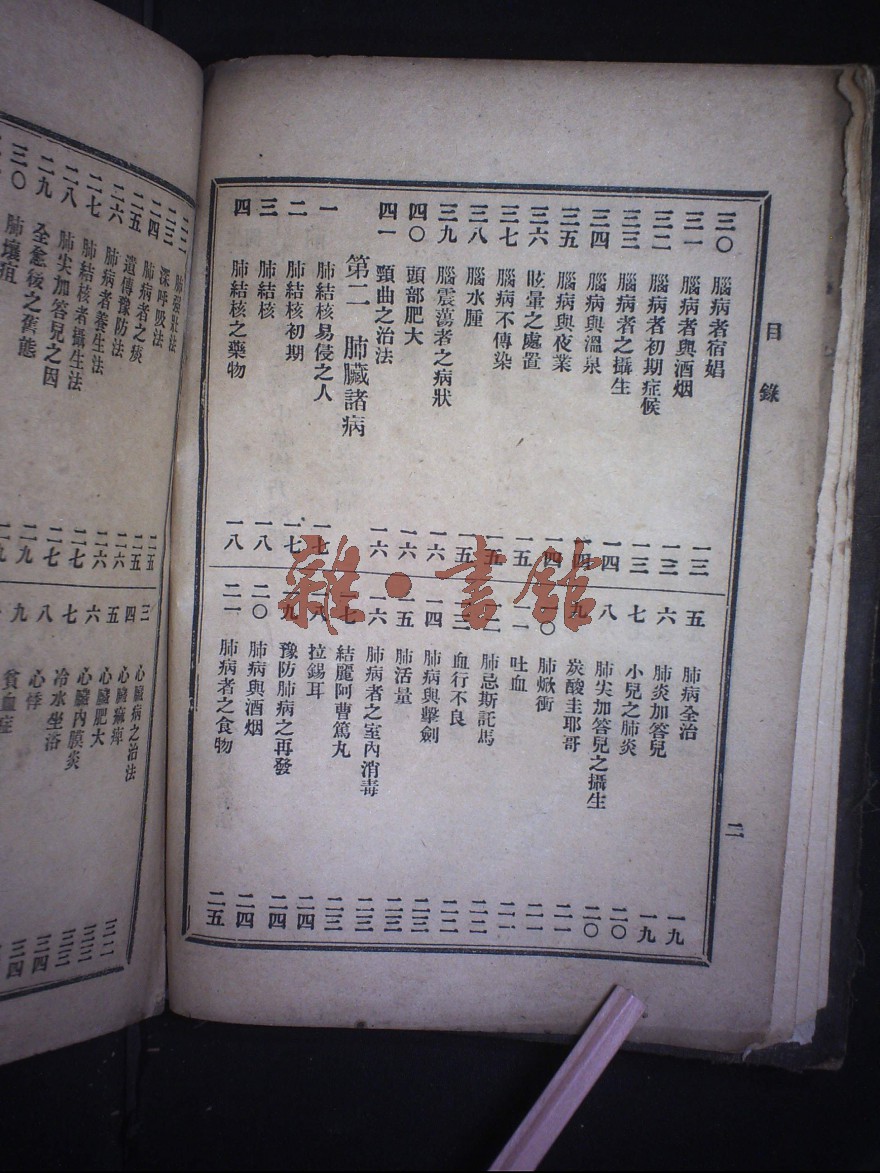 目錄
三〇 腦病者宿娼 一三
三一 腦病者與酒烟 一三
三二 腦病者初期症候 一三
三三 腦病者之攝生 一四
三四 腦病與溫泉 一四
三五 腦病與夜業 一四
三六 眩暈之處置 一五
三七 腦病不傳染 一五
三八 腦水腫 一五
三九 腦震蕩者之病狀 一六
四〇 頭部肥大 一六
四一 頸曲之治法 一六
第二 肺臟諸病
一 肺結核易侵之人 一七
二 肺結核初期 一七
三 肺結核 一八
四 肺結核之藥物 一八
五 肺病全治 一九
六 肺炎加答兒 一九
七 小兒之肺炎 二〇
八 肺尖加答兒之攝生 二〇
九 炭酸圭耶哥 二一
一〇 肺焮衝 二一
一一 吐血 二一
一二 肺忌斯託馬 二二
一三 血行不良 二二
一四 肺病與擊劍 二三
一五 肺活量 二三
一六 肺病者之室內消毒 二三
一七 結麗阿曹篤丸 二三
一八 拉錫耳 二四
一九 豫防肺病之再發 二四
二〇 肺病與酒烟 二四
二一 肺病者之食物 二五
二
雜·書館
二二 肺强壯法 二五
二三 深呼吸法 二五
二四 肺病者之痰 二六
二五 遺傳豫防法 二六
二六 肺病者養生法 二七
二七 肺結核者攝生法 二七
二八 肺尖加答兒之因 二九
二九 全愈後之舊態 二九
三〇 肺壞疽
三 心臟病之治法 三二
四 心臟痲痺 三三
五 心臟肥大 三三
六 心臟內膜炎 三四
七 冷水坐浴 三四
八 心悸
九 貧血症